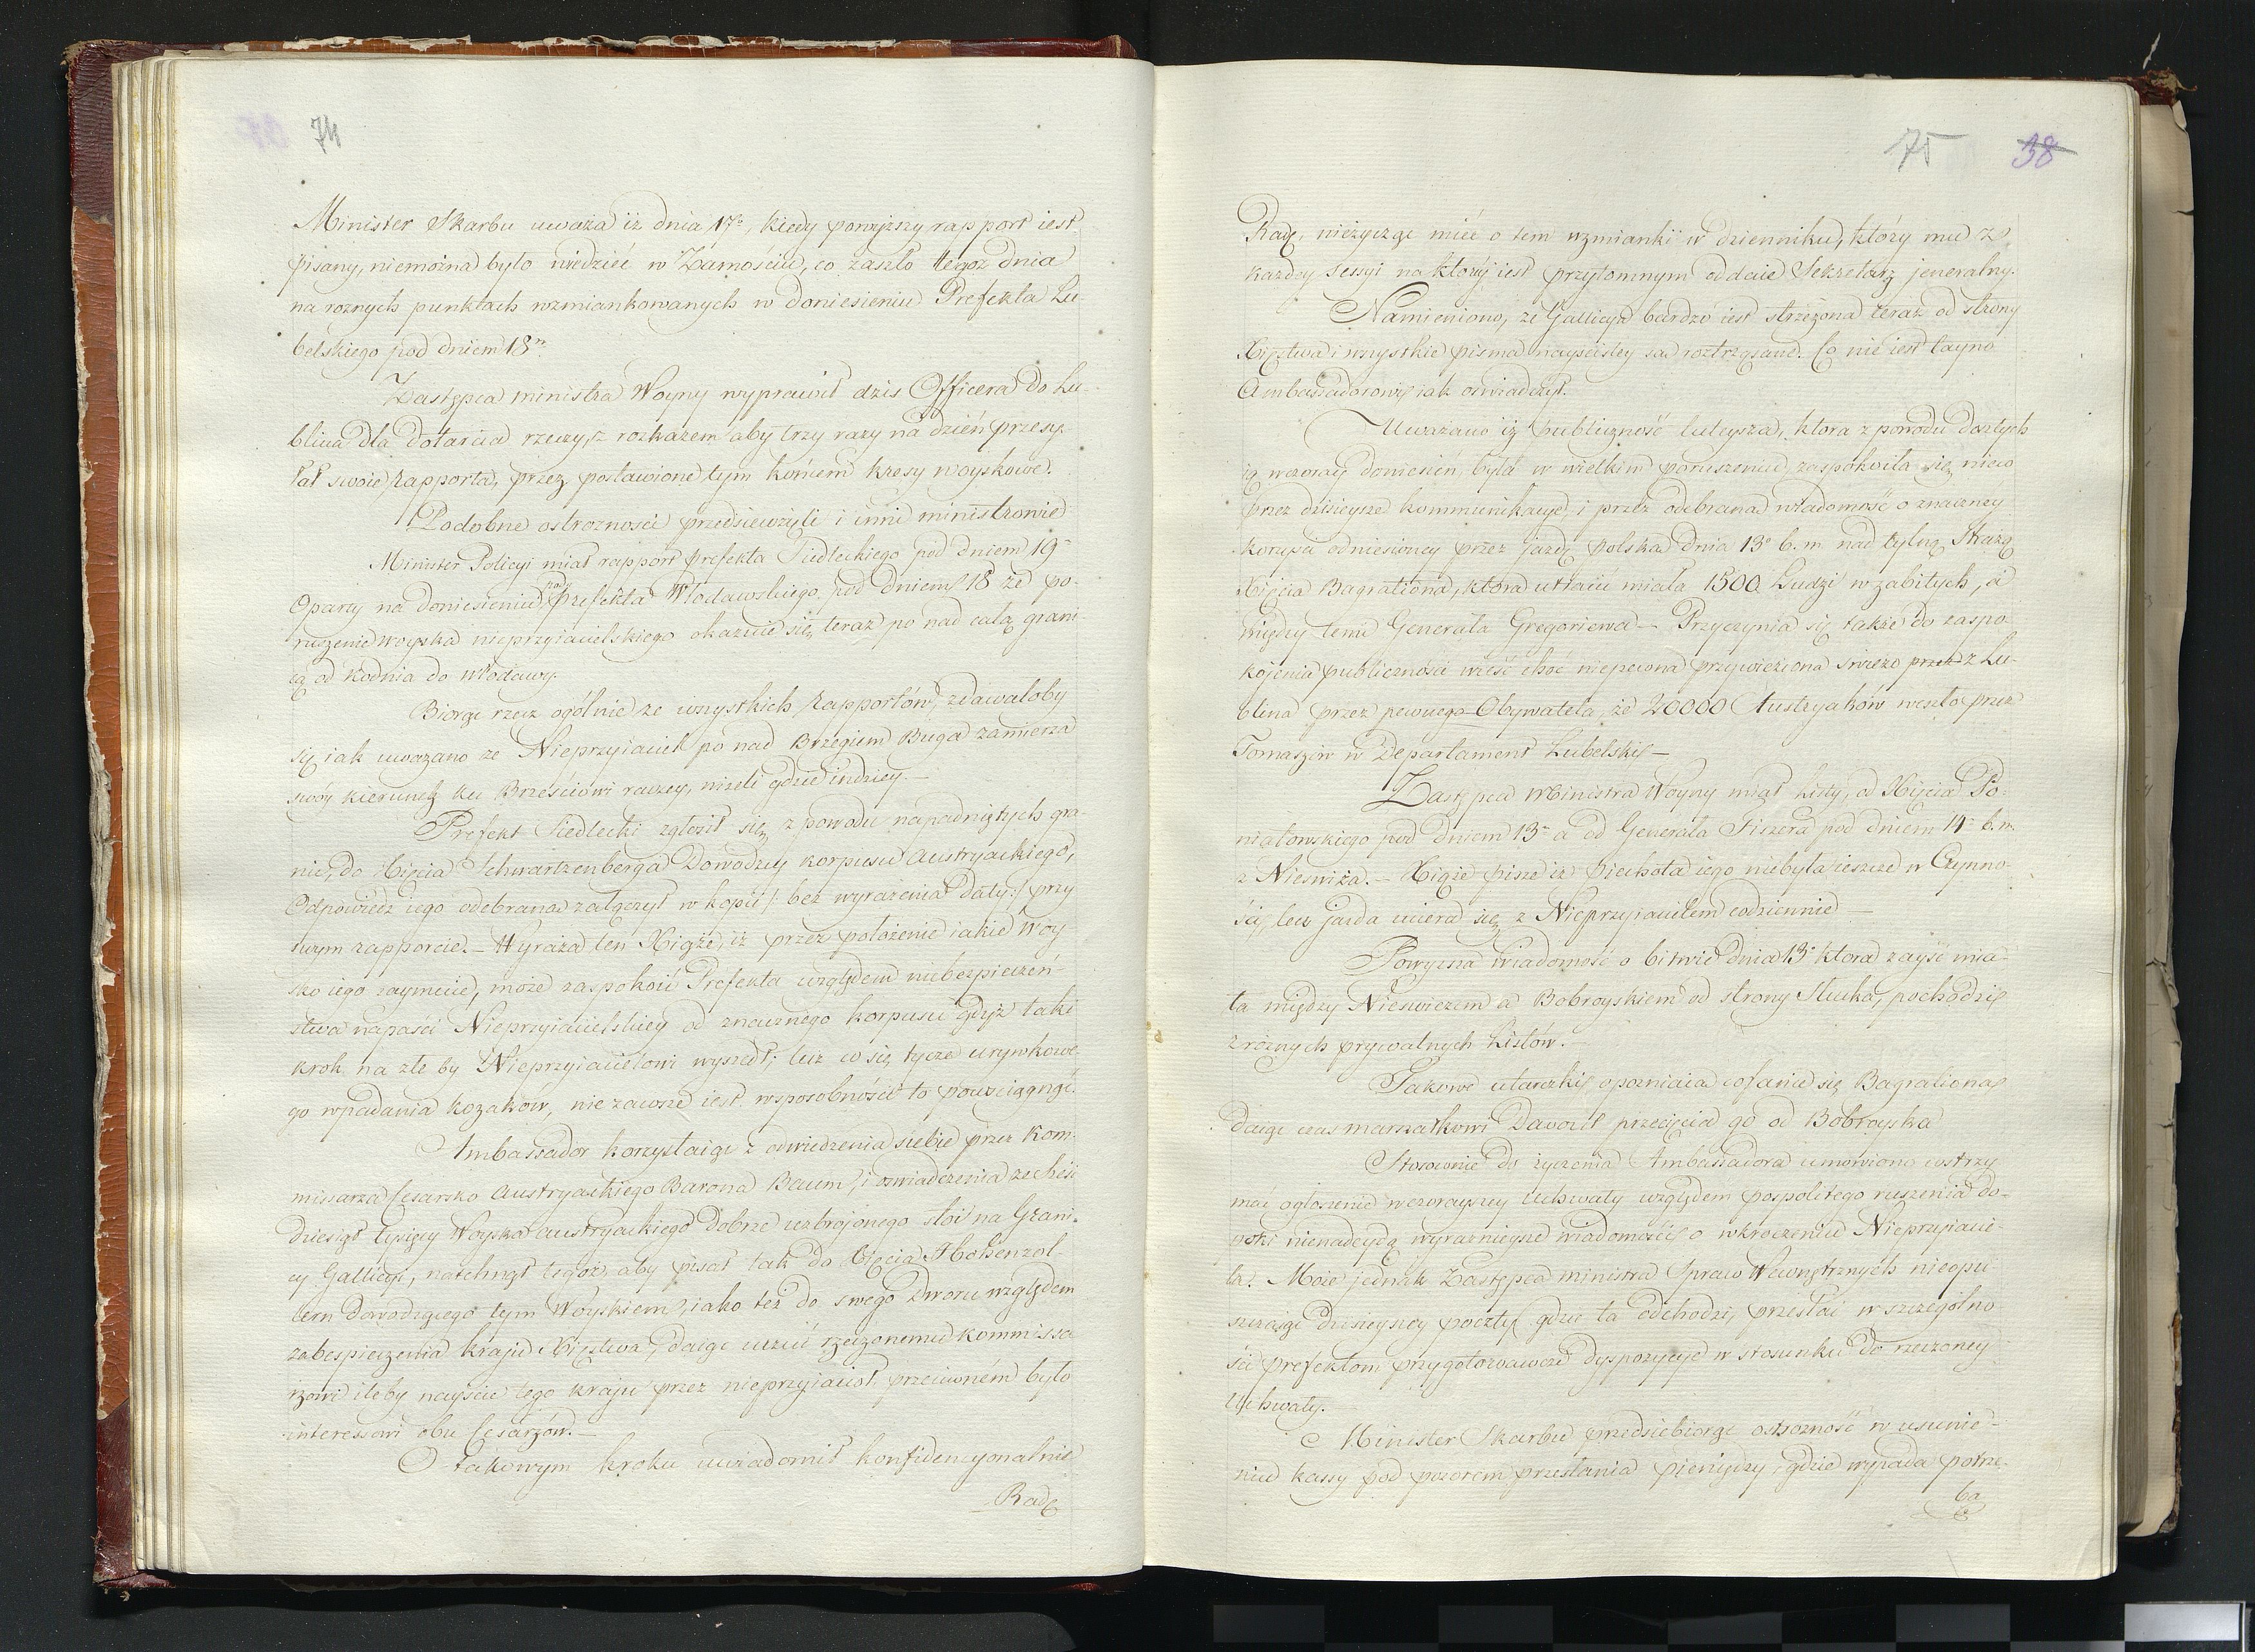 74
Minister Skarbu uważa iż dnia 17º, kiedy powyższy rapport iest
pisany, niemożna było wiedzieć w Zamościu, co zaszło tegoż dnia
na roznych punktach wzmiankowanych w doniesieniu Prefekta Lu-
belskiego pod dniem 18ᵐ.
Zastępca ministra Woyny wyprawił dzis Officera do Lu-
blina dla dotarcia rzeczy, z rozkazem aby trzy razy na dzień przesy-
łał swoie rapporta, przez postawione tym końcem kresy woyskowe.
Podobne ostrozności przedsiewzięli i inni ministrowie
Minister Policyi miał rapport prefekta Siedleckiego pod dniem 19ᵐ
Oparty na doniesieniu pod prefekta Włodawskiego, pod dniem 18 ze po-
ruszenie woyska nieprzyiacielskiego okazuie się teraz po nad całą grani-
cą od Kodnia do Włodawy.
Biorąc rzecz ogólnie ze wszystkich rapportów, zdawałoby
się iak uwazano ze Nieprzyiaciel po nad Brzegiem Buga zamierza
swóy kierunek ku Brześciowi raczey, niżeli gdzie indziey.—
Prefekt Siedlecki zgłosił się z powodu napadniętych gra-
nic, do Xięcia Schwartzenberga Dowodzcy korpusu Austryackiego,
Odpowiedz iego odebraną załączył w kopii /: bez wyrażenia Daty:/ przy
swym rapporcie.— Wyraża ten Xiąże, iż przez położenie iakie Woy-
sko iego zaymuie, może zaspokoić Prefekta względem niebezpieczeń-
stwa napaści Nieprzyiacielskiey od znacznego korpusu gdyż taki
krok na złe by Nieprzyiacielowi wyszedł; lecz co się tycze urywkowe-
go wpadania kozaków, nie zawsze iest w sposobności to powściągnąć.
Ambassador korzystaiąc z odwiedzenia siebie przez Kom-
missarza Cesarsko Austryackiego Barona Baum, i oswiadczenia ze trzy
dziesiąt tysięcy Woyska Austryackiego dobrze uzbrojonego stoi na Grani-
cy Gallicyi, natchnął tegoż, aby pisał tak do Xięcia Hohenzol-
lern Dowodzącego tym Woyskiem, iako też do swego Dworu względem
zabespieczenia kraju Xięstwa, daiąc uczuć rzeczonemu kommissa
rzowi ileby nayście tego kraju przez nieprzyiaciół przeciwném było
interessowi obu Cesarzów.—
O takowym kroku uwiadomił konfidencyonalnie
Radę
75 38
Radę, nieżycząc mieć o tem wzmianki w dzienniku, który mu z
każdey sessyi na którey iest przytomnym oddaie Sekretarz jeneralny.
Namieniono, że Gallicya bardzo iest strzeżona teraz od strony
Xięstwa i wszystkie pisma nayscisley są roztrząsane. Co nie iest tayno
Ambassadorowi iak oswiadczył.
Uwazano iż publiczność tuteysza, ktora z powodu doszłych
ią wczoray doniesień, była w wielkim poruszeniu, zaspokoiła się nieco
przez dzisieysze kommunikacye, i przez odebraną wiadomość o znaczney
korzyści odniesioney przez jazdę polską dnia 13º b. m. nad tylną Strażą
Xięcia Bagrationa, ktora utracić miała 1500 Ludzi w zabitych, a
między temi Generała Gregoriewa— Przyczynia się także do zaspo-
kojenia publiczności wieść choć niepewna przywieziona świeżo z Lu-
blina przez pewnego Obywatela, że 20000 Austryaków weszło przez
Tomaszów w Departament Lubelski—
Zastępca Ministra Woyny miał Listy, od Xięcia Po-
niatowskiego pod dniem 13ᵐ a od Generała Fiszera pod dniem 14ᵐ b. m.
z Nieswiża.— Xiąże pisze iż piechota iego niebyła ieszcze w Czynno-
ści, lecz jazda uciera się z Nieprzyiacielem codziennie—
Powyzsza wiadomość o bitwie dnia 13º ktora zayść mia-
ła między Nieswieżem a Bobroyskiem od strony Słucka, pochodzi
z róznych prywatnych Listów.—
Takowe utarczki opozniaią cofanie się Bagrationa
daiąc czas marszałkowi Davout przecięcia go od Bobroyska
Stosownie do życzenia Ambassadora umówiono wstrzy-
mać ogłoszenie wczorayszey Uchwały względem pospolitego ruszenia do-
poki nienadeydą wyrazniejsze wiadomości o wkroczeniu Nieprzyiacie-
la. Może jednak Zastępca ministra Spraw Wewnętrznych nieopu-
szczaiąc dzisieyszey poczty gdzie ta odchodzi, przesłać w szczególno
ści prefektom przygotowawcze dyspozycye w stosunku do rzeczoney
Uchwały.
Minister Skarbu przedsiebiorąc ostrozność w usunie-
niu kassy pod pozorem przesłania pieniędzy, gdzie wypada potrze-
ba